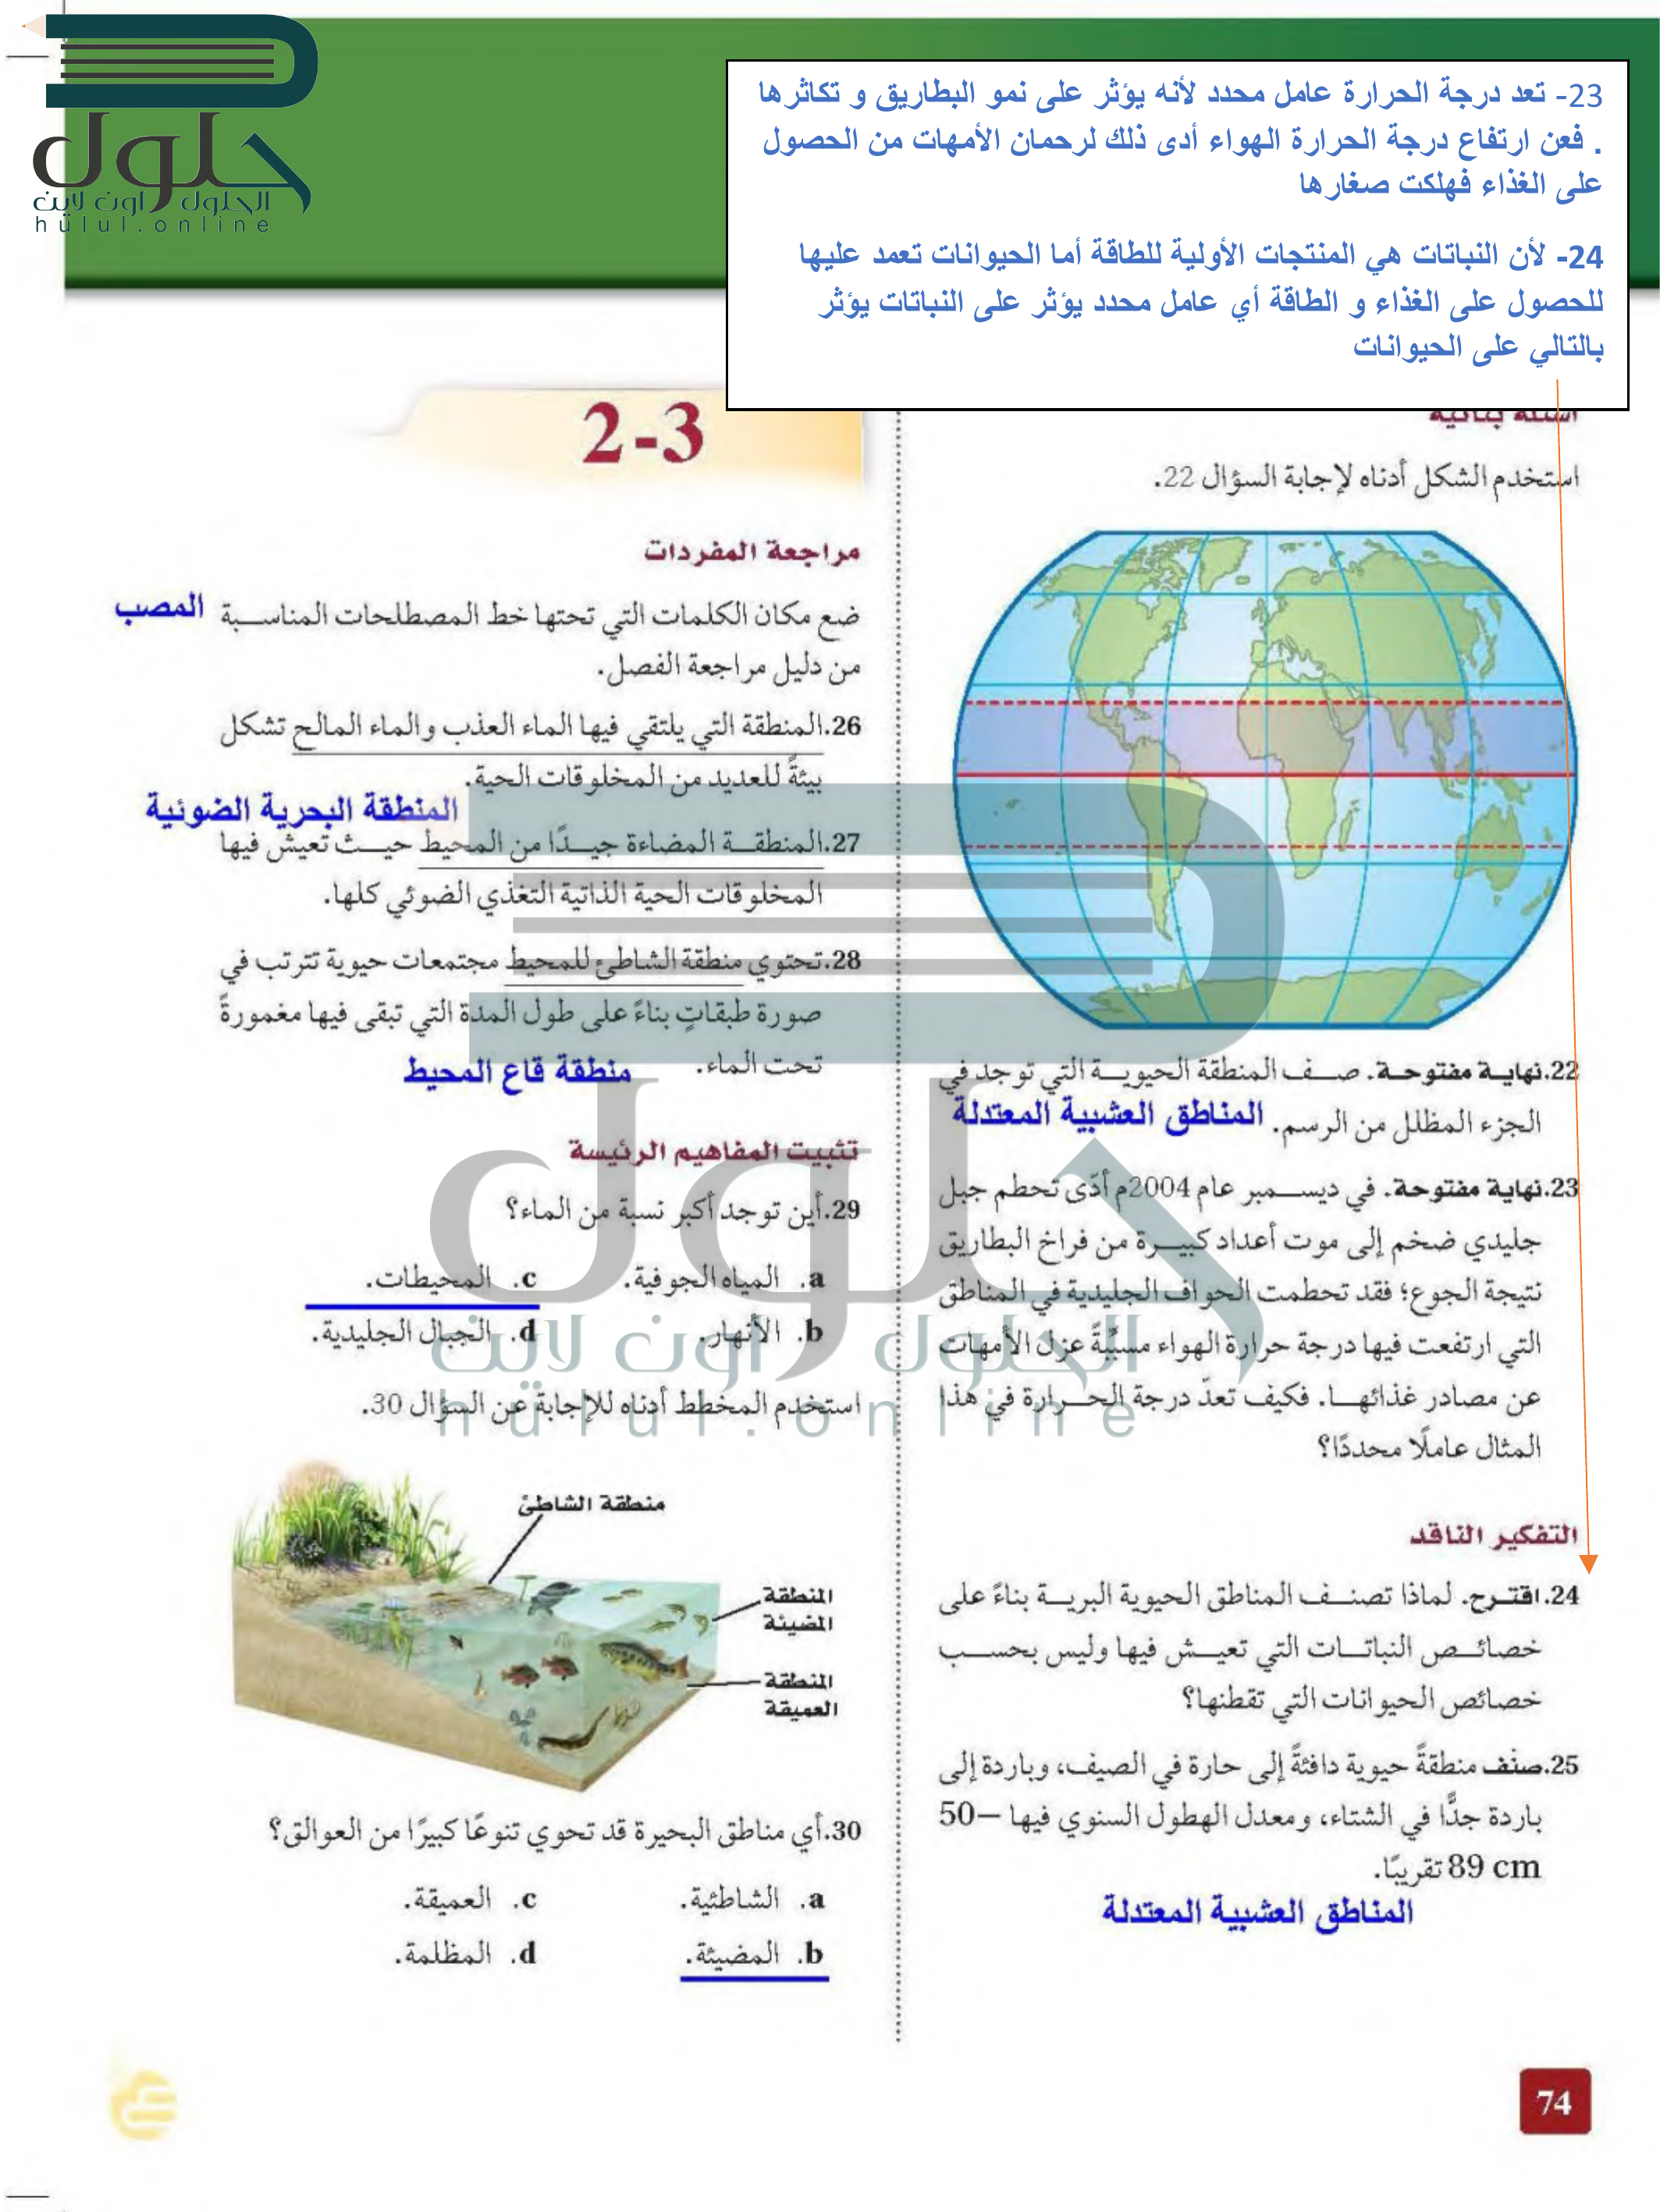 حلول
الحلول اون لاين
hulul.online
23- تعد درجة الحرارة عامل محدد لأنه يؤثر على نمو البطاريق و تكاثرها
. فعن ارتفاع درجة الحرارة الهواء أدى ذلك لرحمان الأمهات من الحصول
على الغذاء فهلكت صغارها
24- لأن النباتات هي المنتجات الأولية للطاقة أما الحيوانات تعمد عليها
للحصول على الغذاء و الطاقة أي عامل محدد يؤثر على النباتات يؤثر
بالتالي على الحيوانات
أسئلة بنائية
استخدم الشكل أدناه لإجابة السؤال 22.
22.نهاية مفتوحة. صف المنطقة الحيوية التي توجد في
الجزء المظلل من الرسم. المناطق العشبية المعتدلة
23.نهاية مفتوحة. في ديسمبر عام 2004م أدّى تحطم جبل
جليدي ضخم إلى موت أعداد كبيرة من فراخ البطاريق
نتيجة الجوع؛ فقد تحطمت الحواف الجليدية في المناطق
التي ارتفعت فيها درجة حرارة الهواء مسبِّبةً عزل الأمهات
عن مصادر غذائها. فكيف تعدّ درجة الحرارة في هذا
المثال عاملًا محددًا؟
التفكير الناقد
24.اقترح. لماذا تصنف المناطق الحيوية البرية بناءً على
خصائص النباتات التي تعيش فيها وليس بحسب
خصائص الحيوانات التي تقطنها؟
25.صنّف منطقةً حيوية دافئةً إلى حارة في الصيف، وباردة إلى
باردة جدًّا في الشتاء، ومعدل الهطول السنوي فيها 50–
89 cm تقريبًا.
المناطق العشبية المعتدلة
2-3
مراجعة المفردات
ضع مكان الكلمات التي تحتها خط المصطلحات المناسبة المصب
من دليل مراجعة الفصل.
26.المنطقة التي يلتقي فيها الماء العذب والماء المالح تشكل
بيئةً للعديد من المخلوقات الحية.
المنطقة البحرية الضوئية
27.المنطقة المضاءة جيدًا من المحيط حيث تعيش فيها
المخلوقات الحية الذاتية التغذي الضوئي كلها.
28.تحتوي منطقة الشاطئ للمحيط مجتمعات حيوية تترتب في
صورة طبقاتٍ بناءً على طول المدة التي تبقى فيها مغمورةً
تحت الماء. منطقة قاع المحيط
تثبيت المفاهيم الرئيسة
29.أين توجد أكبر نسبة من الماء؟
a. المياه الجوفية. c. المحيطات.
b. الأنهار. d. الجبال الجليدية.
استخدم المخطط أدناه للإجابة عن السؤال 30.
منطقة الشاطئ
المنطقة
المضيئة
المنطقة
العميقة
30.أي مناطق البحيرة قد تحوي تنوعًا كبيرًا من العوالق؟
a. الشاطئية. c. العميقة.
b. المضيئة. d. المظلمة.
حلول
الحلول اون لاين
hulul.online
74